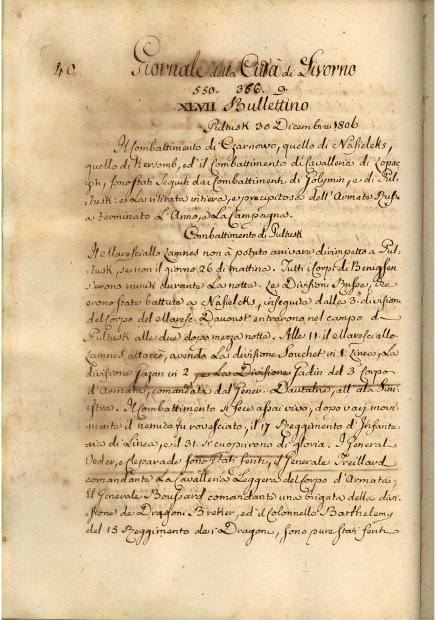 40 Giornale della Città di Livorno
550. 366. 9
XLVII Bullettino
Pultusk 30 Dicembre 1806
Il Combattimento di Czarnowo, quello di Nasieleks,
quello di Kursomb, ed il Combattimento di Cavalleria di Lopac
zin, sono stati seguiti dai Combattimenti di Golymin, e di Pul-
tusk: e La ritirata intiera, e precipitosa dell'Armata Russ
a terminato L'Anno, e La Campagna.
Combattimento di Pultusk
Il Maresciallo Lannes non à potuto arrivare dirimpetto a Pul-
tusk, se non il giorno 26 di mattina. Tutti i Corpi di Benigsen
s'erono riuniti durante La notte. Le Divisioni Russe, che
erono state battute a Nasielcks, inseguite dalla 3. divisione
del Corpo del Maresc. Davoust entrarono nel campo di
Pultusk alle due dopo mezza notte. Alle 11. il Maresciallo
Lannes attaccò, avendo La divisione Souchet in 1. Linea, La
divisione Gazan in 2. Divisione Gudin del 3. Corpo
d'Armata, comandata dal Gener. Dautalne, all'ala Sini
stra. Il Combattimento si fece assai vivo, dopo varj movi
mente il nemico fu rovesciato, il 17. Reggimento d'Infante
ria di Linea, e il 31. si cuoprirono di gloria. I General
Veder, e Cleparade sono stati feriti, il Generale Treillard
comandante La Cavalleria Leggera del Corpo d'Armata,
Il Generale Boussard comandante una brigata della divi-
sione de Dragoni Becker, ed il Colonnello Barthelemy
del 15. Reggimento de i Dragoni, sono pure stati feriti